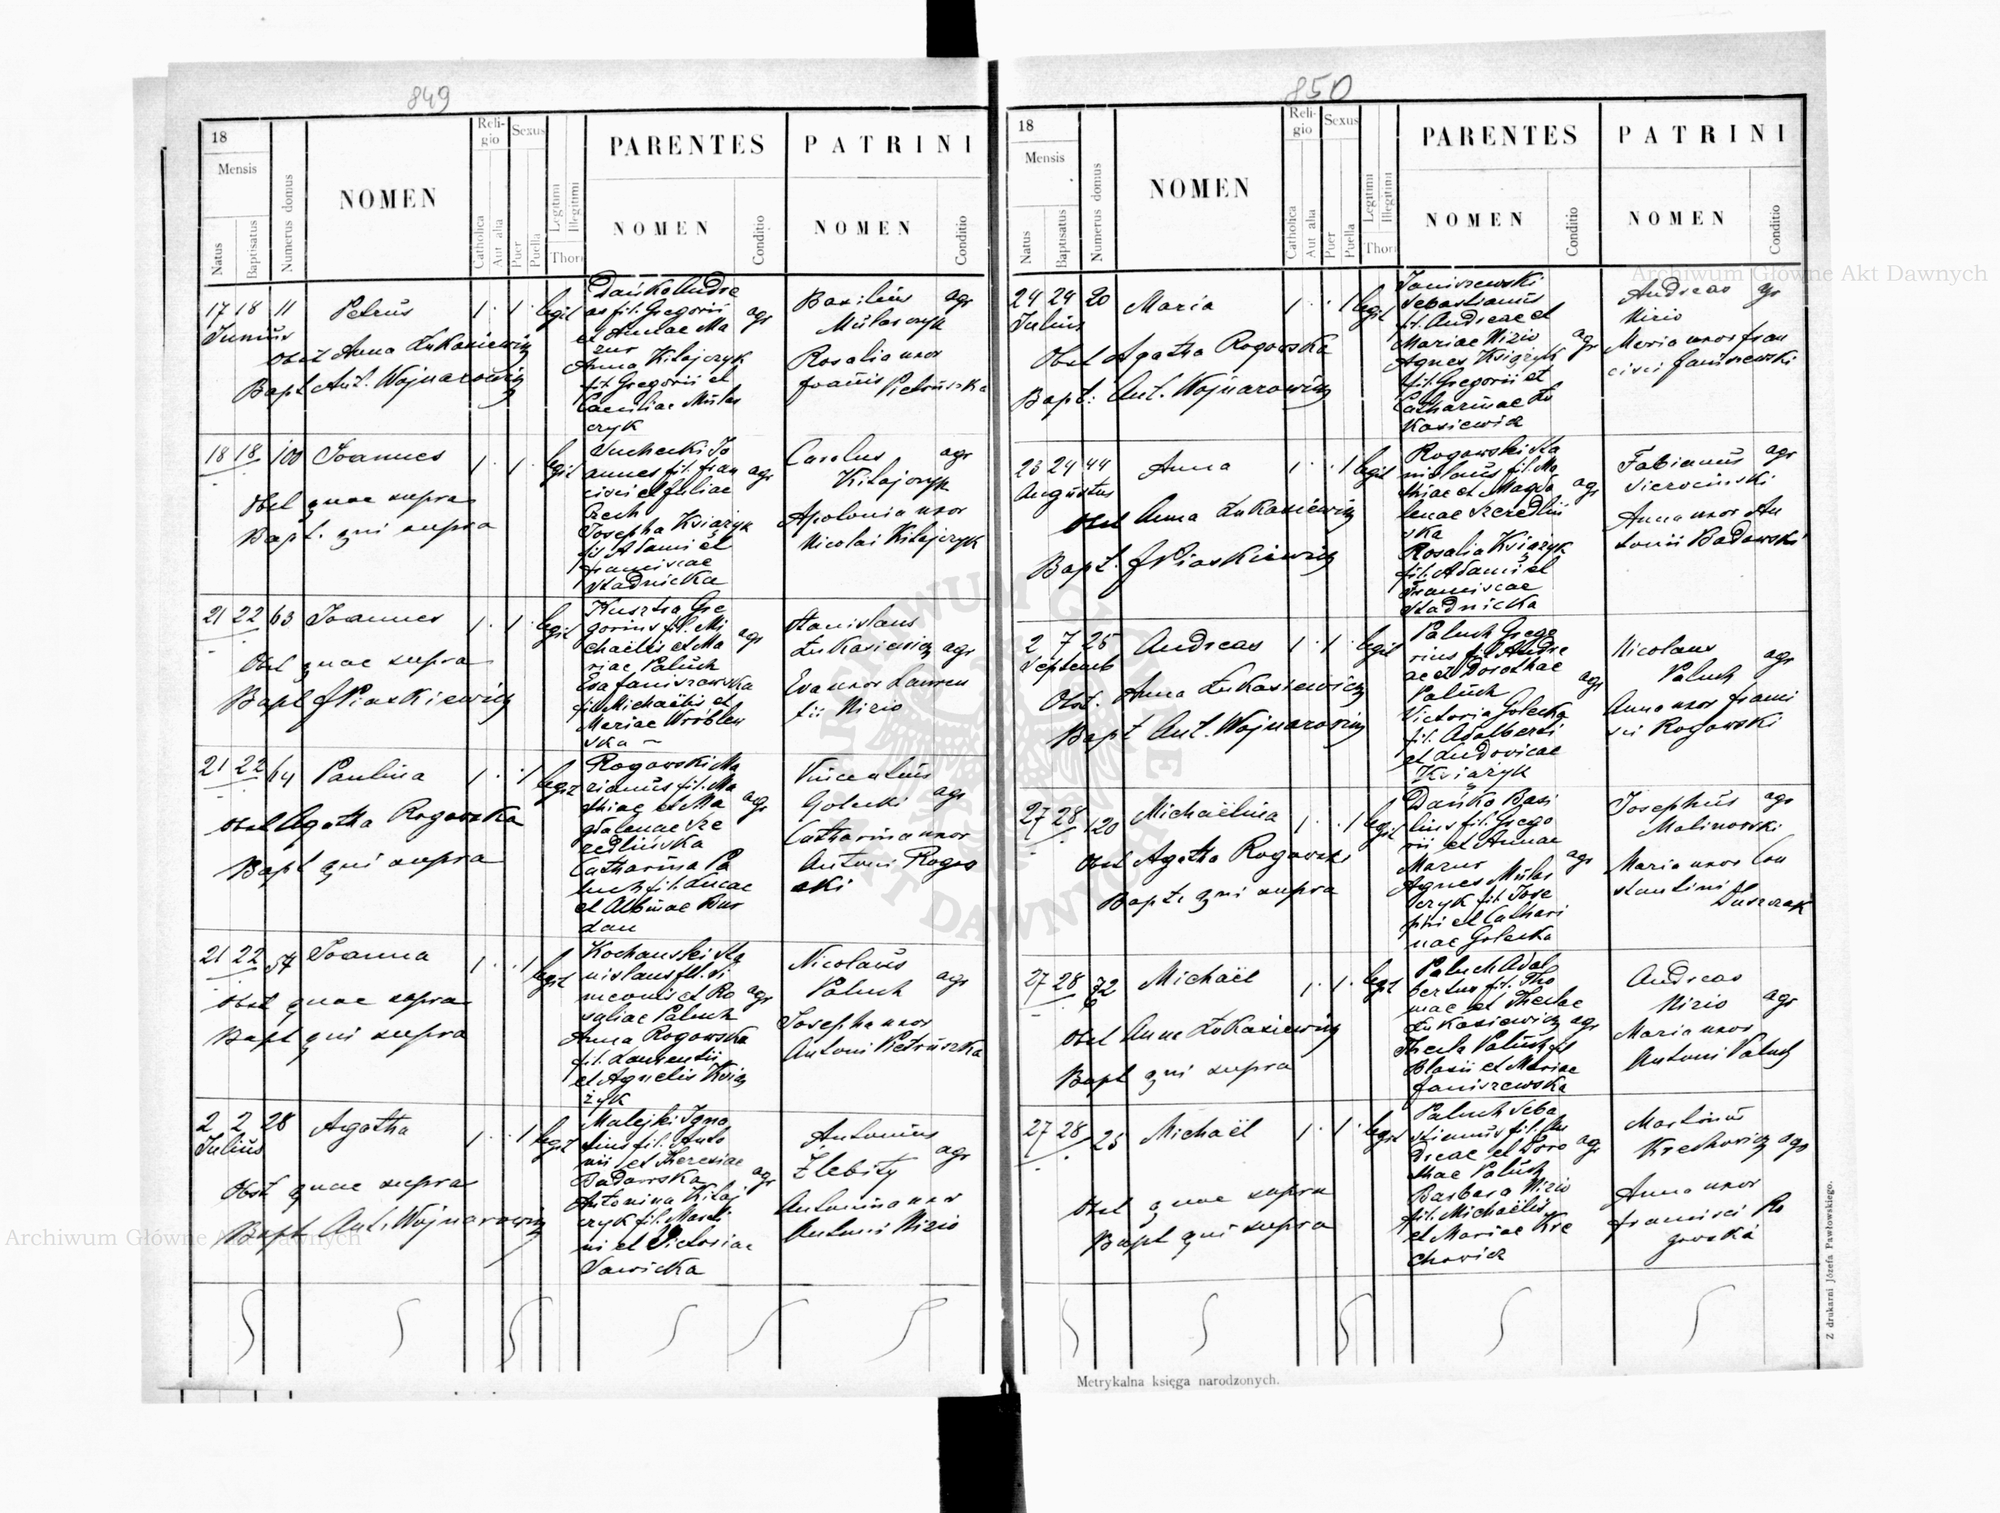 849
18
Mensis
Natus
Baptisatus
Numerus domus
NOMEN
Religio
Catholica
Aut alia
Sexus
Puer
Puella
Legitimi
Illegitimi
Thori
PARENTES
NOMEN
Conditio
PATRINI
NOMEN
Conditio
17 18 11 Petrus 1 · 1 · legit
Junius
Obst Anna Łukasiewicz
Bapt Ant. Wojnarowicz
Dańko Andre
as fil. Gregorii
et Annae Ma
zur
Anna Kitajczyk
fil. Gregorii et
Caeciliae Mular
czyk
agr
Basilius agr
Mularczyk
Rosalia uxor
Joannis Pietruszka
18 18 100 Joannes 1 · 1 · legit
Obst quae supra
Bapt. qui supra
Suchecki Jo
annes fil. Fran
cisci et Juliae
Czech
Josepha Książyk
fil. Adami et
Franciscae
Stadnicka
agr
Carolus agr
Kitajczyk
Apolonia uxor
Nicolai Kitajczyk
21 22 63 Joannes 1 · 1 · legit
Obst quae supra
Bapt J Piaskiewicz
Kusztra Gre
gorius fil. Mi
chaëlis et Ma
riae Paluch
Eva Janiszewska
fil. Michaëlis et
Mariae Wróblew
ska
agr
Stanislaus
Łukasiewicz agr
Eva uxor Lauren
tii Nizio
21 22 64 Paulina 1 · · 1 legit
Obst Agatha Rogowska
Bapt qui supra
Rogowski Ma
rianus fil. Ma
thiae et Ma
gdalenae Sze
redlińska
Catharina Pa
luch fil. Lucae
et Albinae Bur
dan
agr
Vincentius
Golecki agr
Catharina uxor
Antoni Rogow
ski
21 22 54 Joanna 1 · · 1 legit
Obst quae supra
Bapt qui supra
Kochanski Sta
nislaus fil. Si
meonis et Ro
saliae Paluch
Anna Rogowska
fil. Laurentii
et Agnetis Ksią
żyk
agr
Nicolaus
Paluch agr
Josepha uxor
Antoni Pietruszka
2 2 28 Agatha 1 · · 1 legit
Julius
Obst quae supra
Bapt Ant. Wojnarowicz
Malejki Igna
tius fil. Anto
nii et Theresiae
Badowska
Antonina Kitaj
czyk fil. Marti
ni et Victoriae
Sawicka
agr
Antonius
Zlebity agr
Antonina uxor
Antoni Nizio
850
18
Mensis
Natus
Baptisatus
Numerus domus
NOMEN
Religio
Catholica
Aut alia
Sexus
Puer
Puella
Legitimi
Illegitimi
Thori
PARENTES
NOMEN
Conditio
PATRINI
NOMEN
Conditio
24 24 20 Maria 1 · · 1 legit
Julius
Obst Agatha Rogowska
Bapt: Ant. Wojnarowicz
Janiszewski
Sebastianus
fil. Andreae et
Mariae Nizio
Agnes Książyk
fil. Gregorii et
Catharinae Łu
kasiewicz
agr
Andreas agr
Nizio
Maria uxor Fran
cisci Janiszewski
23 24 44 Anna 1 · · 1 legit
Augustus
Obst Anna Łukasiewicz
Bapt. J Piaskiewicz
Rogowski Sta
nislaus fil. Ma
thiae et Magda
lenae Szeredliń
ska
Rosalia Książyk
fil. Adami et
Franciscae
Stadnicka
agr
Fabianus agr
Sierocinski
Anna uxor An
tonii Badowski
2 7 25 Andreas 1 · 1 · legit
Septemb
Obst. Anna Łukasiewicz
Bapt Ant. Wojnarowicz
Paluch Grego
rius fil. Andre
ae et Dorothae
Paluch
Victoria Golecka
fil. Adalberti
et Ludovicae
Książyk
agr
Nicolaus
Paluch agr
Anna uxor Franci
sci Rogowski
27 28 120 Michaëlina 1 · · 1 legit
Obst Agatha Rogowski
Bapt. qui supra
Dańko Basi
lius fil. Grego
rii et Annae
Mazur
Agnes Mular
czyk fil. Jose
phi et Cathari
nae Golecka
agr
Josephus agr
Malinowski
Maria uxor Con
stantini
Duszczak
27 28 72 Michaël 1 · 1 · legit
Obst Anna Łukasiewicz
Bapt qui supra
Paluch Adal
bertus fil. Tho
mae et Theclae
Łukasiewicz
Thecla Paluch fil
Blasii et Mariae
Janiszewska
agr
Andreas
Nizio agr
Maria uxor
Antoni Paluch
27 28 25 Michaël 1 · 1 · legit
Obst quae supra
Bapt qui supra
Paluch Seba
stianus fil. An
dreae et Doro
thae Paluch
Barbara Nizio
fil. Michaëlis
et Mariae Kre
chowicz
agr
Martinus
Krechowicz agr
Anna uxor
Francisci Ro
gowska
Metrykalna księga narodzonych.
Z drukarni Józefa Pawłowskiego.
Archiwum Główne Akt Dawnych
Archiwum Główne Akt Dawnych
ARCHIWUM GŁÓWNE AKT DAWNYCH